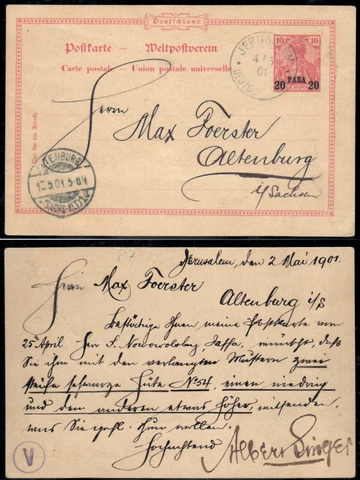 Deutschland
Postkarte — Weltpostverein
Carte postale — Union postale universelle
10 10
20 PARA 20
4/5
01
Herrn
Max Foerster
Altenburg
i/Sachsen
ALTENBURG
12.5.01.5-6N
SACHS.-ALT.
Jerusalem, den 2 Mai 1901
Herrn Max Foerster
Altenburg i/S
Bestätige Ihnen meine Postkarte vom
25 April Herr Jaffa, wünscht, daß
Sie ihm mit den verlangten Mustern zwei
steife schwarze Hüte No 54, einen niedrig
und den anderen etwas höher, mitsenden,
was Sie gefl. thun wollen.
Hochachtend
Albert Singer
V